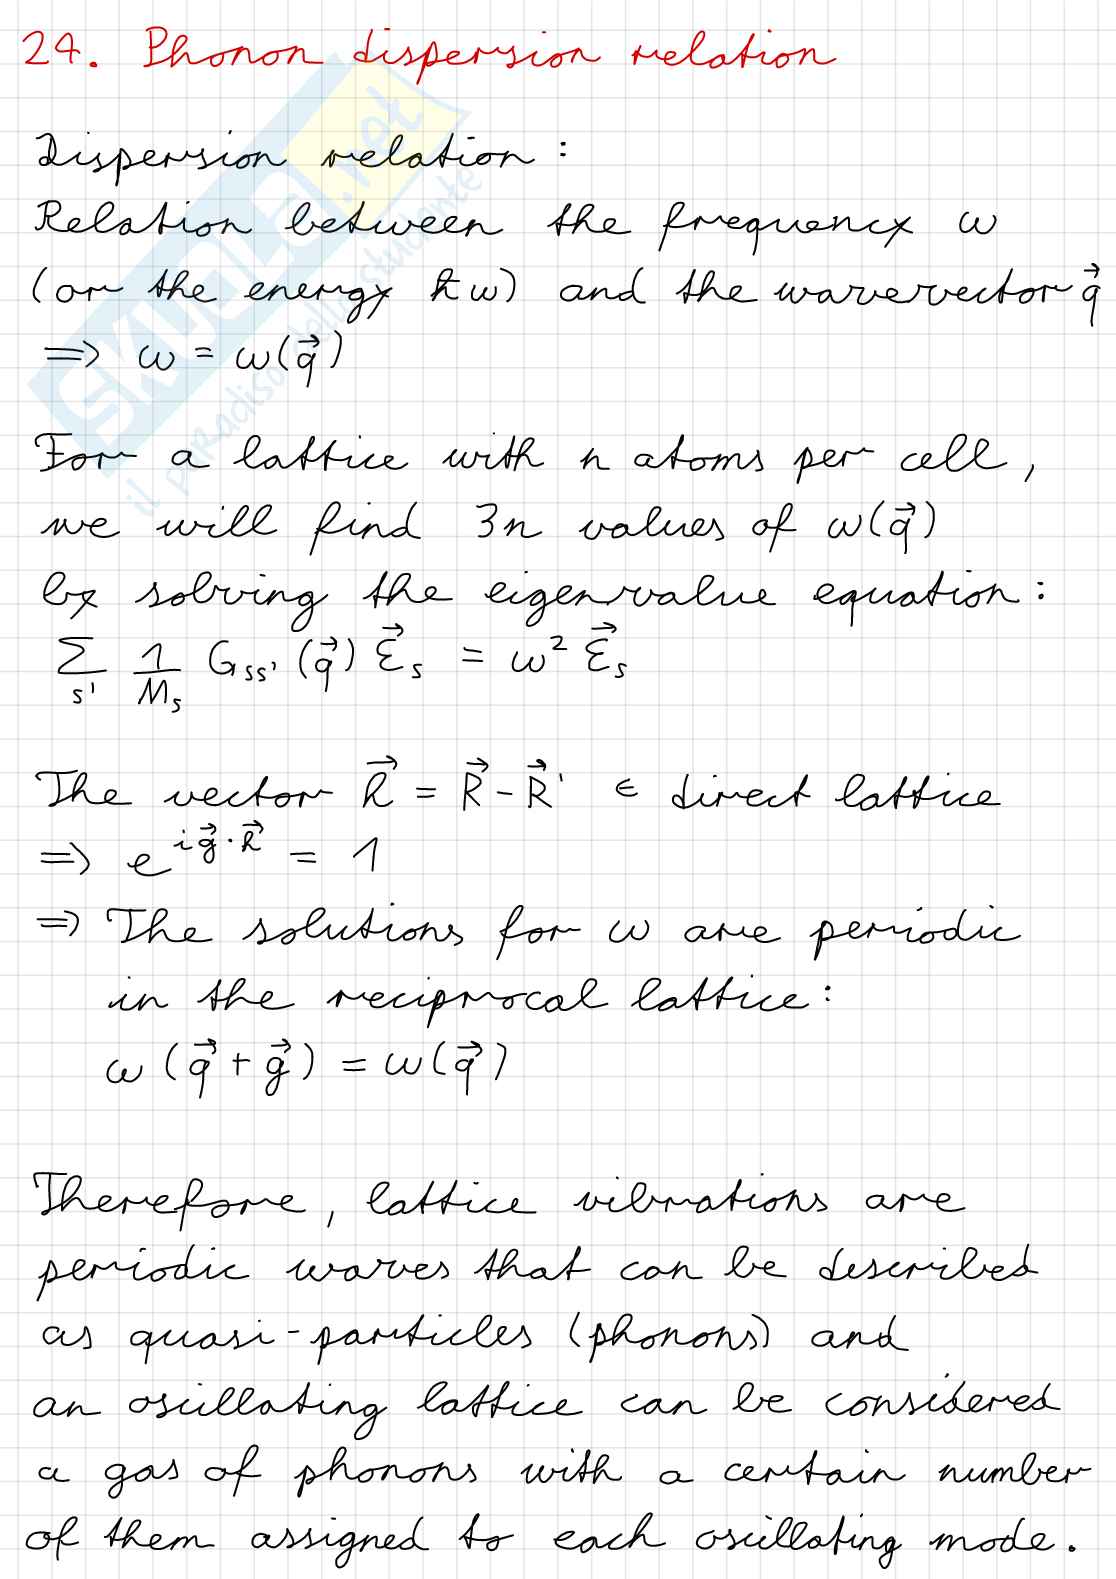 24. Phonon dispersion relation
Dispersion relation:
Relation between the frequency ω
(or the energy ħω) and the wavevector q⃗
=> ω = ω(q⃗)
For a lattice with n atoms per cell,
we will find 3n values of ω(q⃗)
by solving the eigenvalue equation:
∑_s' 1/M_s G_ss' (q⃗) ε⃗_s = ω² ε⃗_s
The vector h⃗ = R⃗ - R⃗' ∈ direct lattice
=> e^(i g⃗·h⃗) = 1
=> The solutions for ω are periodic
in the reciprocal lattice:
ω (q⃗ + g⃗) = ω(q⃗)
Therefore, lattice vibrations are
periodic waves that can be described
as quasi-particles (phonons) and
an oscillating lattice can be considered
a gas of phonons with a certain number
of them assigned to each oscillating mode.
SKUOLA.net
il paradiso dello studente